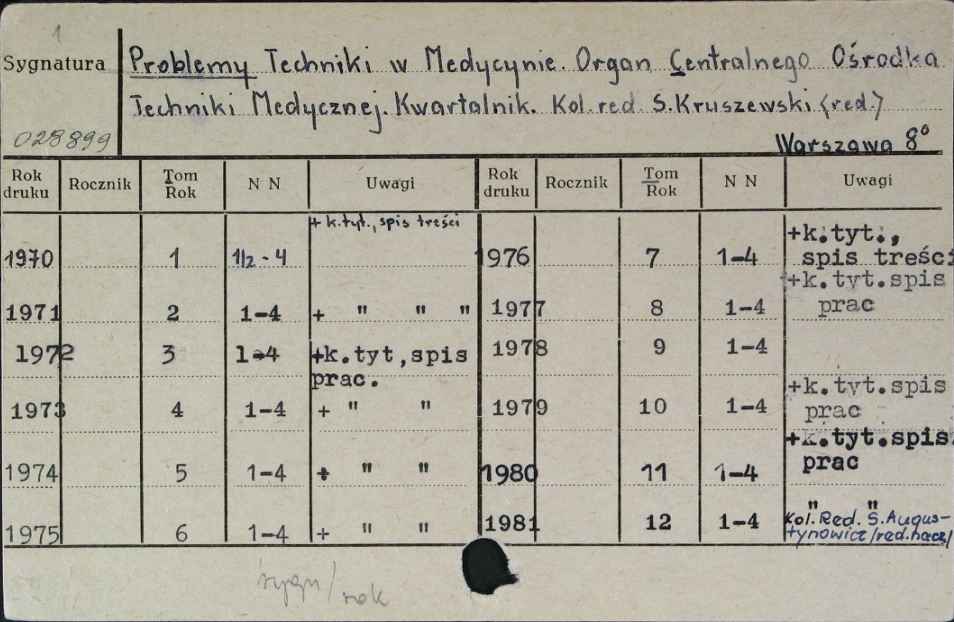 1
Sygnatura
Problemy Techniki w Medycynie. Organ Centralnego Ośrodka
Techniki Medycznej. Kwartalnik. Kol. red. S. Kruszewski (red.)
028899
Warszawa 8°
Rok druku Rocznik Tom Rok N N Uwagi Rok druku Rocznik Tom Rok N N Uwagi
1970 1 1/2 - 4 + k. tyt., spis treści
1971 2 1-4 + " " "
1972 3 1-4 +k.tyt,spis
prac.
1973 4 1-4 + " "
1974 5 1-4 + " "
1975 6 1-4 + " "
1976 7 1-4 +k.tyt.,
spis treści
1977 8 1-4 +k.tyt.spis
prac
1978 9 1-4
1979 10 1-4 +k.tyt.spis
prac
1980 11 1-4 +k.tyt.spis
prac
1981 12 1-4 " "
Kol. Red. S. Augus-
tynowicz /red. nacz/
sygn/
rok